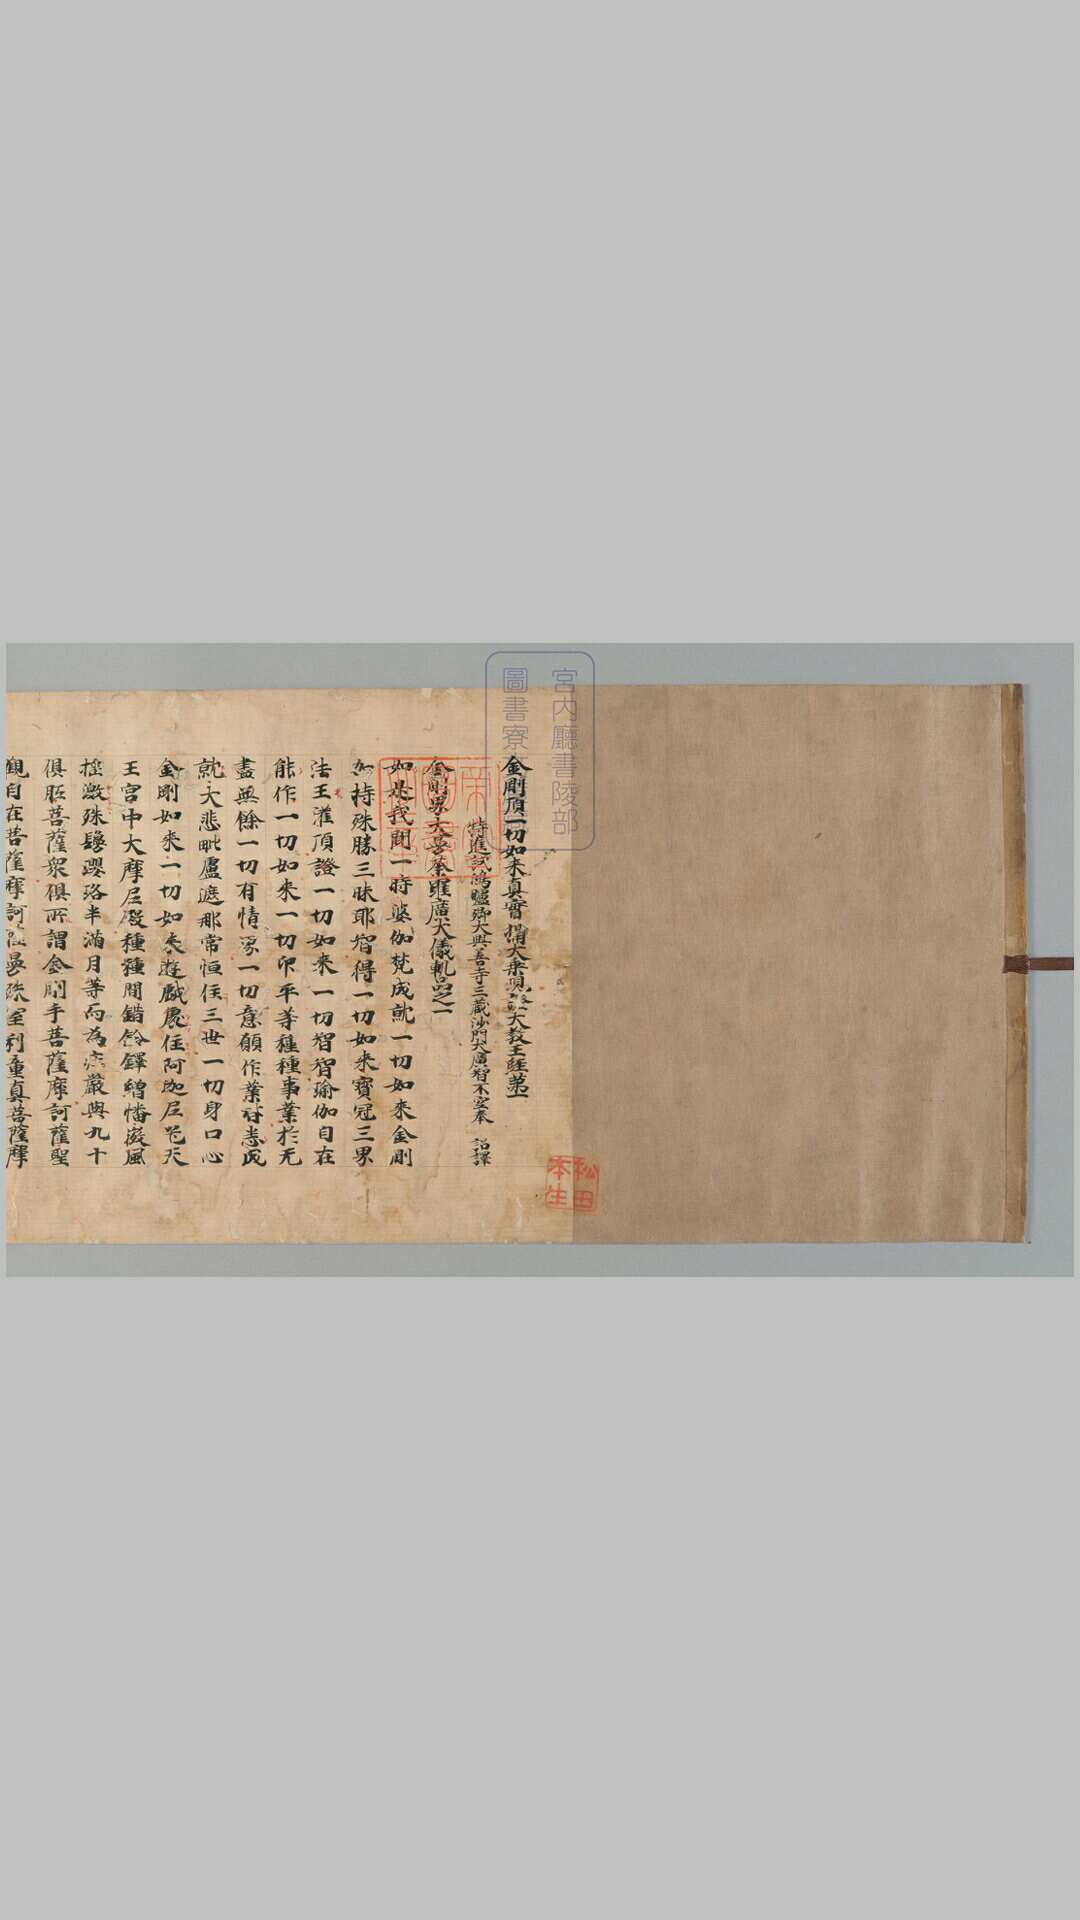 宮内廳書陵部
圖書寮
金剛頂一切如来真實攝大乗現證大教王経第一
特進試鴻臚卿大興善寺三蔵沙門大廣智不空奉 詔譯
金剛界大曼荼羅廣大儀軌品之一
如是我聞一時婆伽梵成就一切如来金剛
加持殊勝三昧耶智得一切如来寶冠三界
法王灌頂證一切如来一切智智瑜伽自在
能作一切如来一切印平等種種事業於无
盡無餘一切有情界一切意願作業皆悉成
就大悲毗盧遮那常恒住三世一切身口心
金剛如来一切如来遊戯處住阿迦尼吒天
王宮中大摩尼殿種種間錯鈴鐸繒幡微風
揺激珠鬘瓔珞半滿月等而為荘嚴與九十
俱胝菩薩衆俱所謂金剛手菩薩摩訶薩聖
觀自在菩薩摩訶薩曼殊室利童真菩薩摩
松田本生